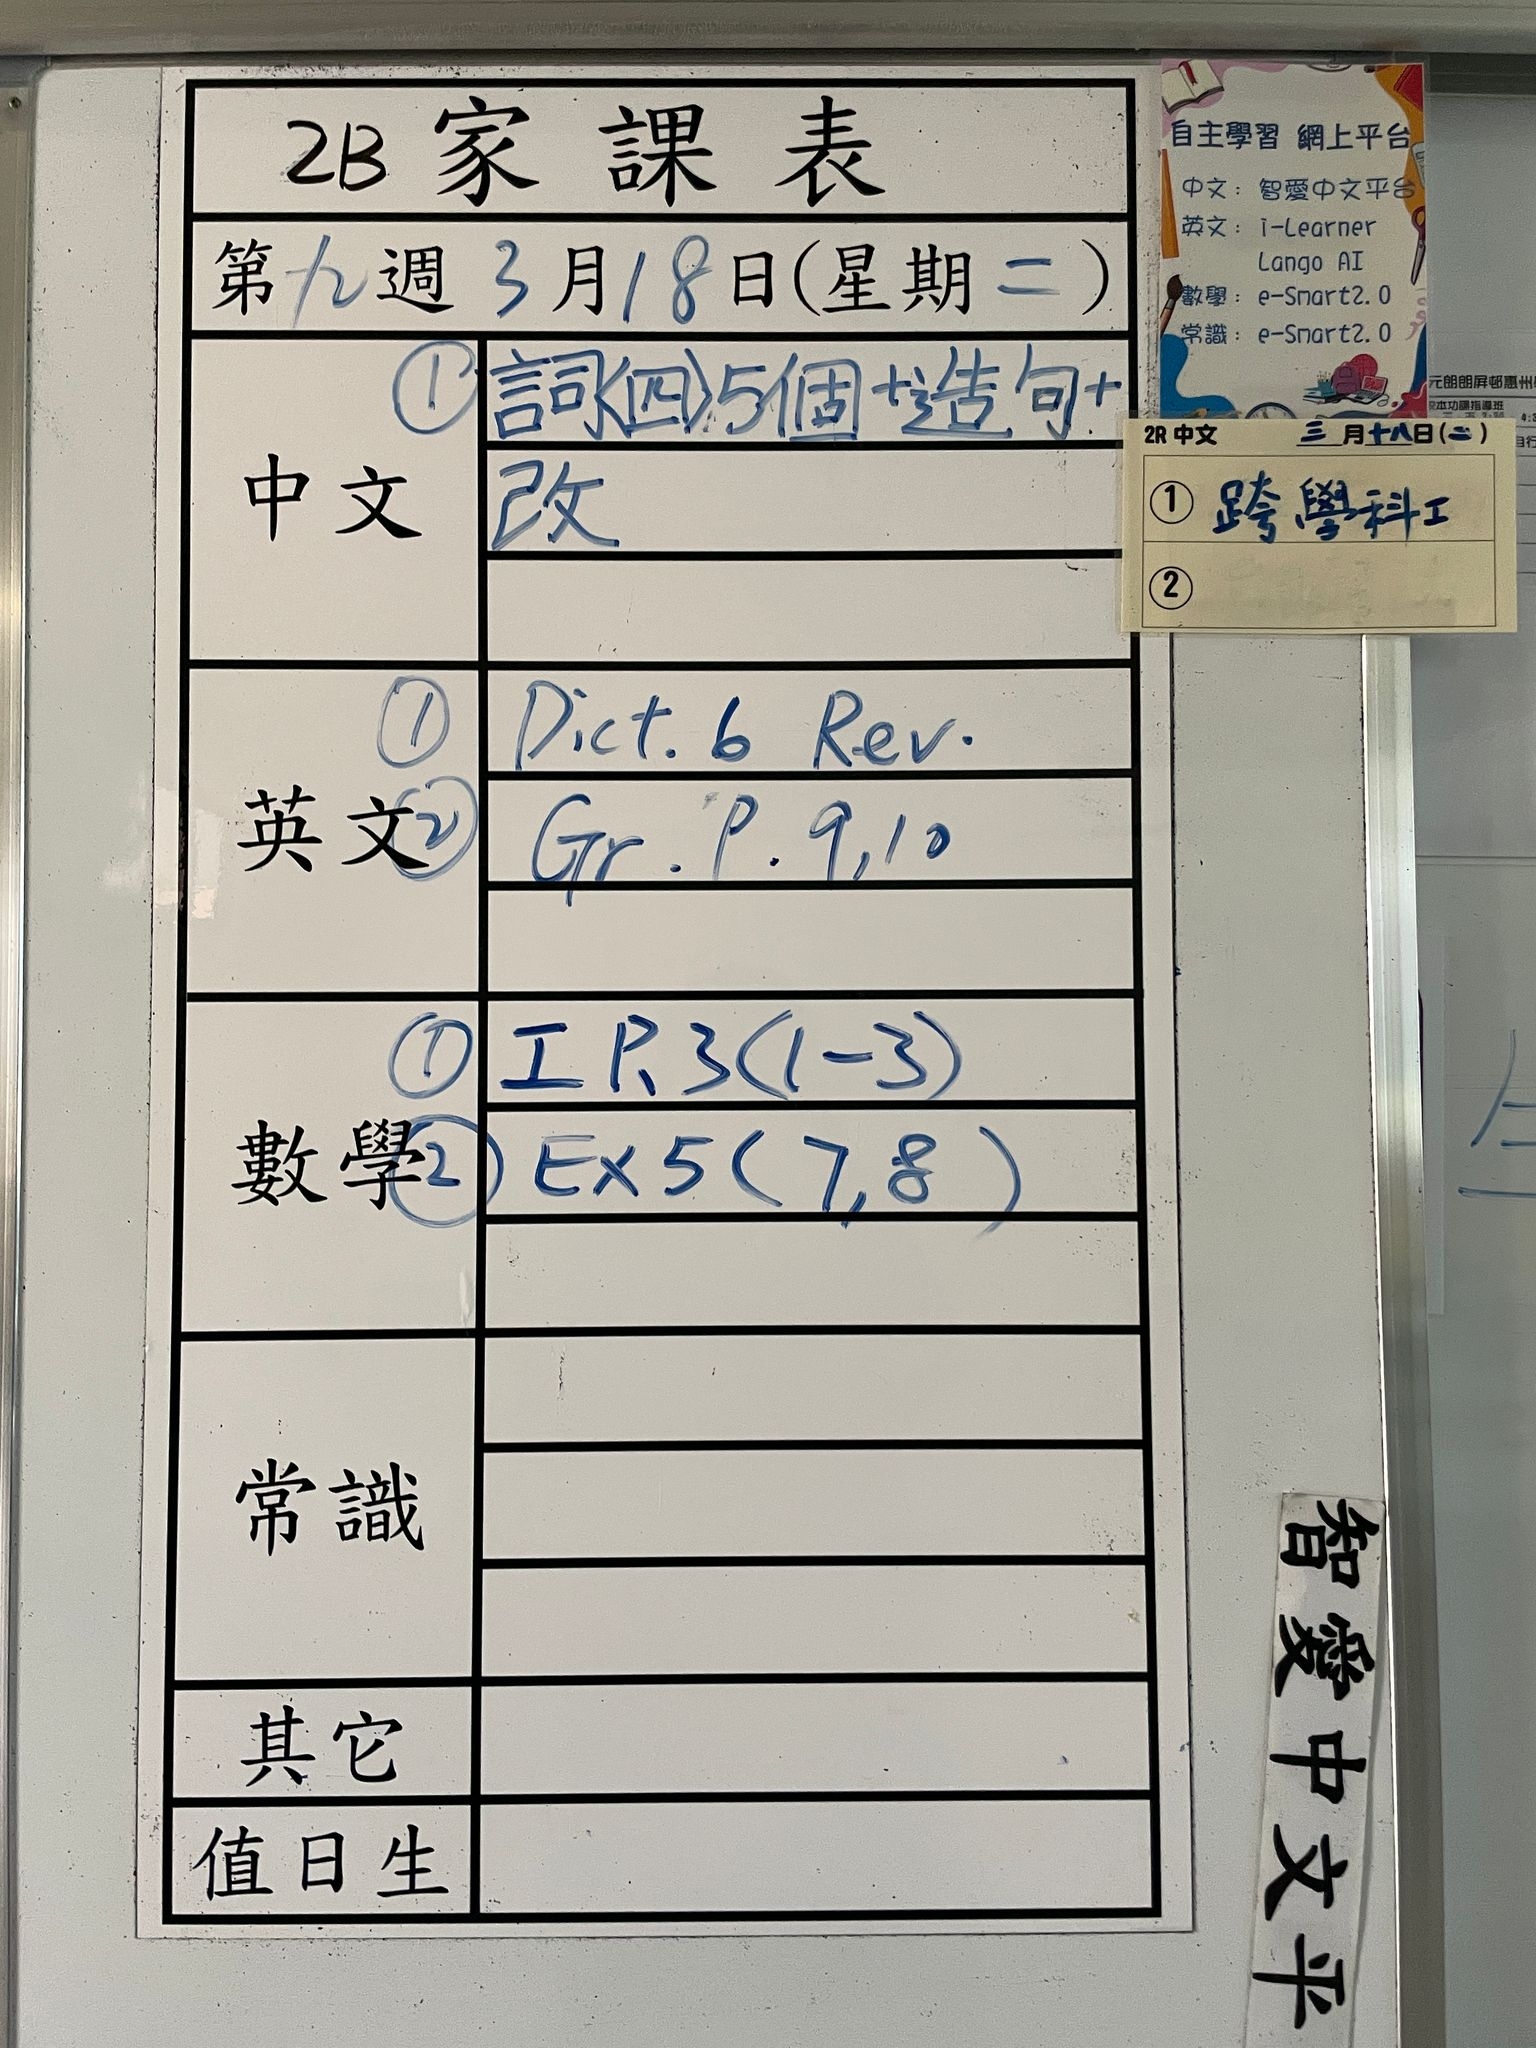 2B 家課表
第九週 3月18日(星期二)
中文
① 詞〈四〉5個+造句+
改
英文
① Dict. 6 Rev.
② Gr. P. 9,10
數學
① 工 P.3(1-3)
② Ex5(7,8)
常識
其它
值日生
自主學習 網上平台
中文: 智愛中文平台
英文: i-Learner
Lango AI
數學: e-Smart2.0
常識: e-Smart2.0
2R 中文 三月十八日(二)
① 跨學科工
②
智愛中文平